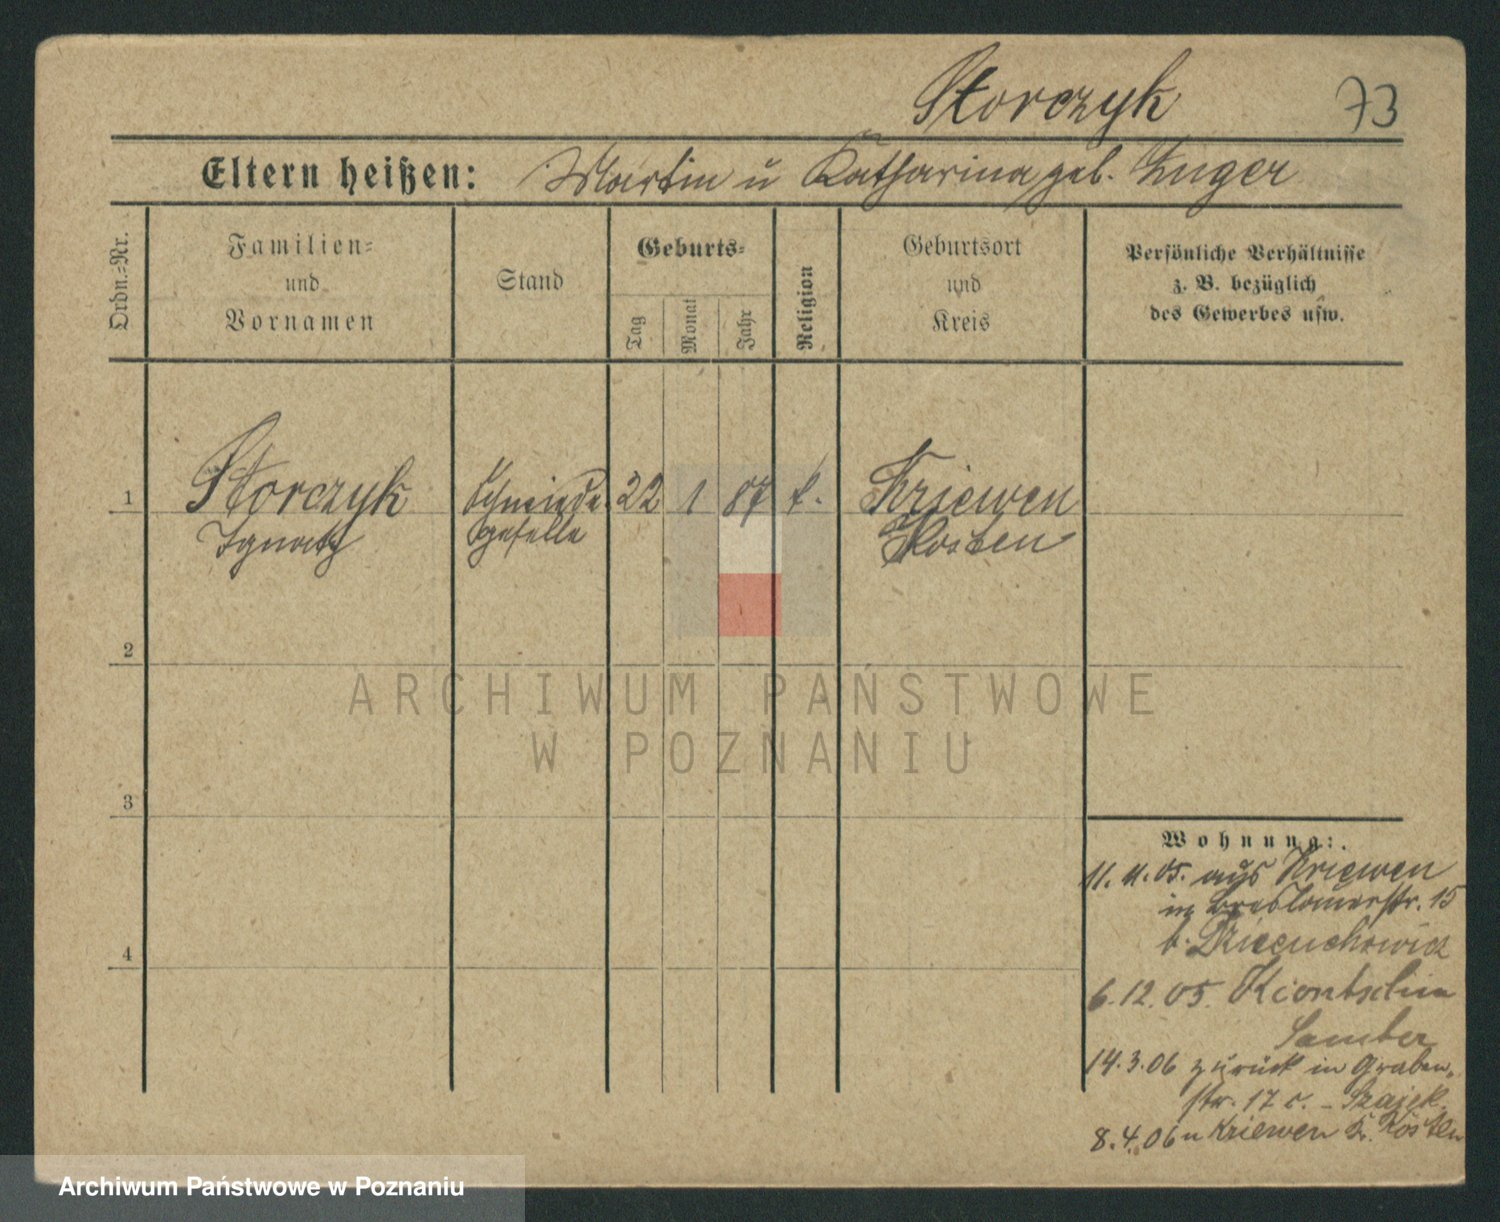 Storczyk 73
Eltern heißen: Martin u Katharina geb. Unger
Ordn.=Nr.
Familien=
und
Vornamen
Stand
Geburts=
Tag
Monat
Jahr
Religion
Geburtsort
und
Kreis
Persönliche Verhältnisse
z. B. bezüglich
des Gewerbes usw.
1 Storczyk 22 1 87 k. Kriewen
Ignatz geselle Kosten
2
ARCHIWUM PAŃSTWOWE
W POZNANIU
3
Wohnung:
11. 11. 05. aus Kriewen
in Breslauerstr. 15
b.
6. 12. 05. Kiontschin
Samter
14. 3. 06 zurück in Graben-
str. 17
8. 4. 06 n Kriewen Kr. Kosten
4
Archiwum Państwowe w Poznaniu